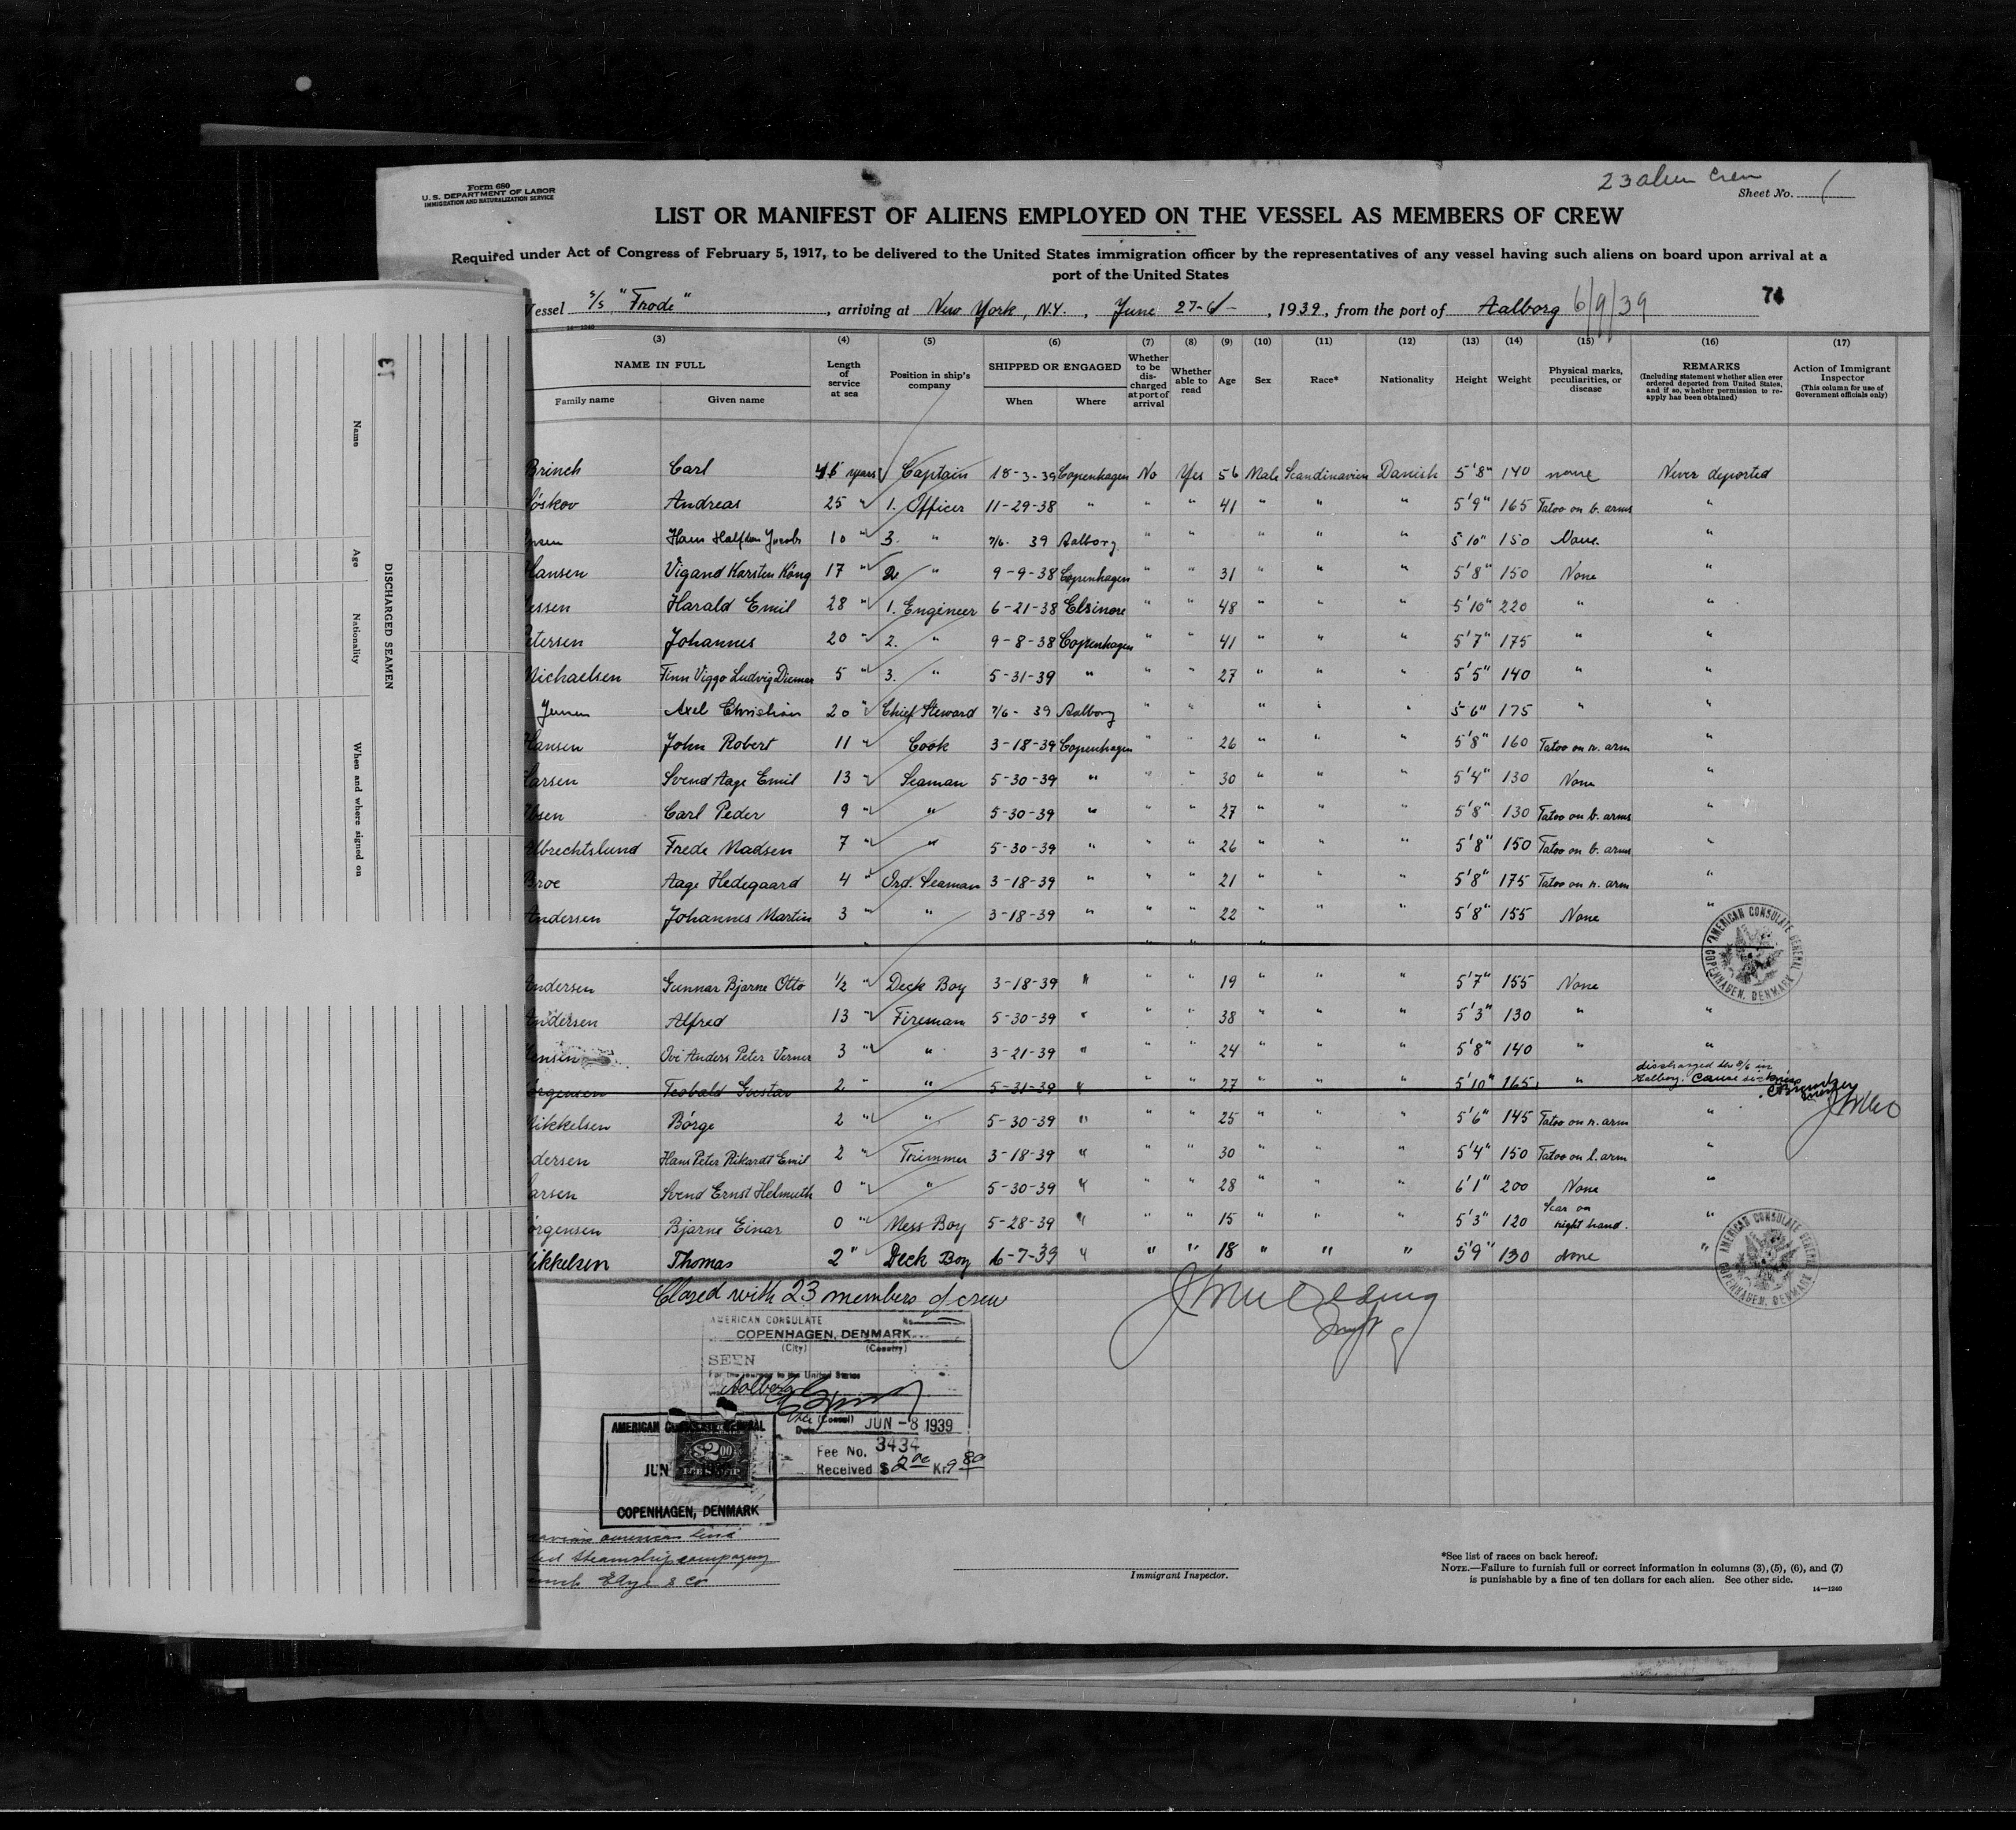 Form 680
U. S. DEPARTMENT OF LABOR
IMMIGRATION AND NATURALIZATION SERVICE
23 alien crew
Sheet No. 1
LIST OR MANIFEST OF ALIENS EMPLOYED ON THE VESSEL AS MEMBERS OF CREW
Required under Act of Congress of February 5, 1917, to be delivered to the United States immigration officer by the representatives of any vessel having such aliens on board upon arrival at a
port of the United States
Vessel S/S "Frode", arriving at New York, N.Y., June 27, 1939, from the port of Aalborg 6/9/39
74
14-1240
(3) (4) (5) (6) (7) (8) (9) (10) (11) (12) (13) (14) (15) (16) (17)
NAME IN FULL
Family name Given name
Length of service at sea
Position in ship's company
SHIPPED OR ENGAGED
When Where
Whether to be discharged at port of arrival
Whether able to read
Age
Sex
Race*
Nationality
Height
Weight
Physical marks, peculiarities, or disease
REMARKS
(Including statement whether alien ever ordered deported from United States, and if so, whether permission to reapply has been obtained)
Action of Immigrant Inspector
(This column for use of Government officials only)
Brinch Carl years Captain 18-3-39 Copenhagen No Yes 56 Male Scandinavian Danish 5'8" 140 none Never deported
Andreas 25 " 1. Officer 11-29-38 " " " 41 " " " 5'9" 165 Tatoo on b. arms "
Hans Halfdan 10 " 3. " 7/6- 39 Aalborg " " " " " 5'10" 150 None "
Hansen Vigand Karsten 17 " 2. " 9-9-38 Copenhagen " " 31 " " " 5'8" 150 None "
Harald Emil 28 " 1. Engineer 6-21-38 Elsinore " " 48 " " " 5'10" 220 " "
Petersen Johannes 20 " 2. " 9-8-38 Copenhagen " " 41 " " " 5'7" 175 " "
Michaelsen Finn Viggo Ludvig 5 " 3. " 5-31-39 " " " 27 " " " 5'5" 140 " "
Jensen Axel Christian 20 " Chief Steward 7/6- 39 Aalborg " " " " " 5'6" 175 " "
Hansen John Robert 11 " Cook 3-18-39 Copenhagen " " 26 " " " 5'8" 160 Tatoo on r. arm "
Larsen Svend Aage Emil 13 " Seaman 5-30-39 " " " 30 " " " 5'4" 130 None "
Carl Peder 9 " " 5-30-39 " " " 27 " " " 5'8" 130 Tatoo on b. arms "
Albrechtslund Frede Madsen 7 " " 5-30-39 " " " 26 " " " 5'8" 150 Tatoo on b. arms "
Broe Aage Hedegaard 4 " Ord. Seaman 3-18-39 " " " 21 " " " 5'8" 175 Tatoo on r. arm "
Andersen Johannes Martin 3 " " 3-18-39 " " " 22 " " " 5'8" 155 None "
Andersen Gunnar Bjarne Otto 1/2 " Deck Boy 3-18-39 " " " 19 " " 5'7" 155 None
Andersen Alfred 13 " Fireman 5-30-39 " " " 38 " " " 5'3" 130 " "
Jensen Ove Anders Peter Verner 3 " " 3-21-39 " " " 24 " " " 5'8" 140 " "
Jørgensen Teobald Gustav 2 " " 5-31-39 " " " 27 " " " 5'10" 165 " discharged 8/6 in Aalborg. Cause
Mikkelsen Børge 2 " " 5-30-39 " " " 25 " " " 5'6" 145 Tatoo on r. arm "
Hans Peter Rikardt Emil 2 " Trimmer 3-18-39 " " " 30 " " " 5'4" 150 Tatoo on l. arm "
Larsen Svend Ernst Helmuth 0 " " 5-30-39 " " " 28 " " " 6'1" 200 None "
Jørgensen Bjarne Einar 0 " Mess Boy 5-28-39 " " " 15 " " " 5'3" 120 Scar on right hand. "
Mikkelsen Thomas 2 " Deck Boy 6-7-39 " " " 18 " " " 5'9" 130 None "
Closed with 23 members of crew
AMERICAN CONSULATE GENERAL
COPENHAGEN, DENMARK
AMERICAN CONSULATE GENERAL
COPENHAGEN, DENMARK
AMERICAN CONSULATE No.
COPENHAGEN, DENMARK
(City) (Country)
SEEN
For the journey to the United States
Aalborg
(Consul)
Date JUN -8 1939
Fee No. 3434
Received $ 2.00 Kr 9.80
AMERICAN CONSULATE GENERAL
$2.00
JUN
COPENHAGEN, DENMARK
american line
steamship company
& Co
Immigrant Inspector.
*See list of races on back hereof.
NOTE.—Failure to furnish full or correct information in columns (3), (5), (6), and (7)
is punishable by a fine of ten dollars for each alien. See other side.
14-1240
13
DISCHARGED SEAMEN
Name Age Nationality When and where signed on